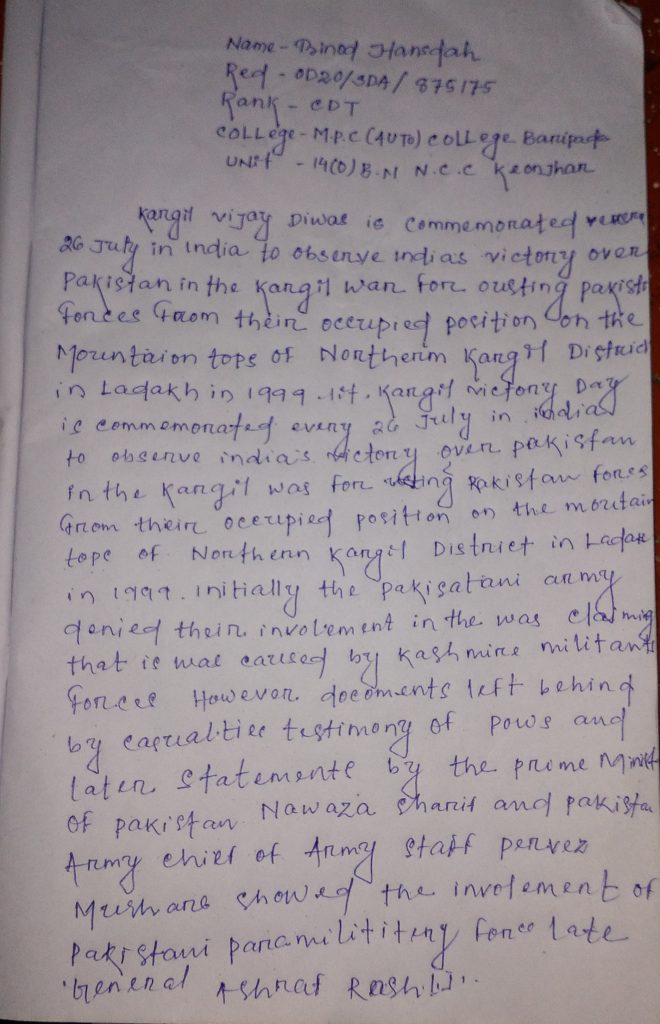 Name - Binod Hansdah
Red - OD20/SDA/ 875175
Rank - CDT
COLLege - M.P.C (AUTO) COLLege Baripada
UNIT - 14(O) B.N N.C.C Keonjhar
Kargil vijay Diwas is Commemorated
26 July in India to observe indias victory over
Pakistan in the Kargil war for ousting pakist
forces from their occupied position on the
Mountaion tops of Northerm Kargil District
in Ladakh in 1999 Kargil victory Day
is commemorated every 26 July in india
to observe india's victory over pakistan
in the Kargil was for Pakistan forces
from their occupied position on the moutain
tops of Northern Kargil District in Ladak
in 1999. initially the pakisatiani army
denied their involement in the was claiming
that is was caused by Kashmire militants
forces However docoments left behind
by casualties testimony of pows and
later statements by the prime Minist
of pakistan Nawaza sharif and pakista
Army chief of Army staff pervez
showed the involement of
Pakistani paramilititery force late
General Ashraf